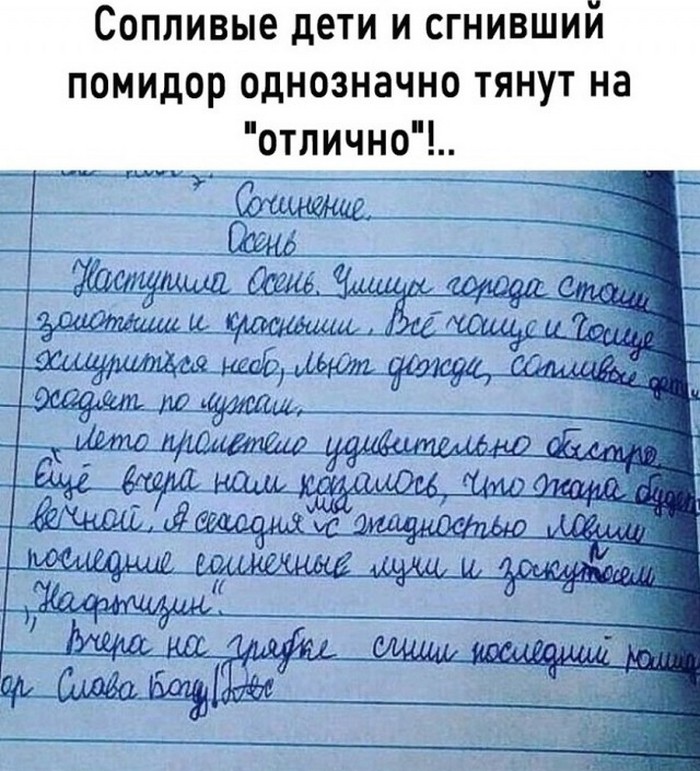 Сопливые дети и сгнивший
помидор однозначно тянут на
"отлично"!..
Сочинение.
Осень
Наступила Осень. Улицы города стали
золотыми и красными. Всё чаще и чаще
хмуриться небо, льют дожди, сопливые дети
ходят по лужам.
Лето пролетело удивительно быстро.
Ещё вчера нам казалось, что жара будет
вечной. А сегодня мы с жадностью ловим
последние солнечные лучи и закупаем
„Нафтизин“.
Вчера на грядке сгнил последний помид
ор Слава Богу!